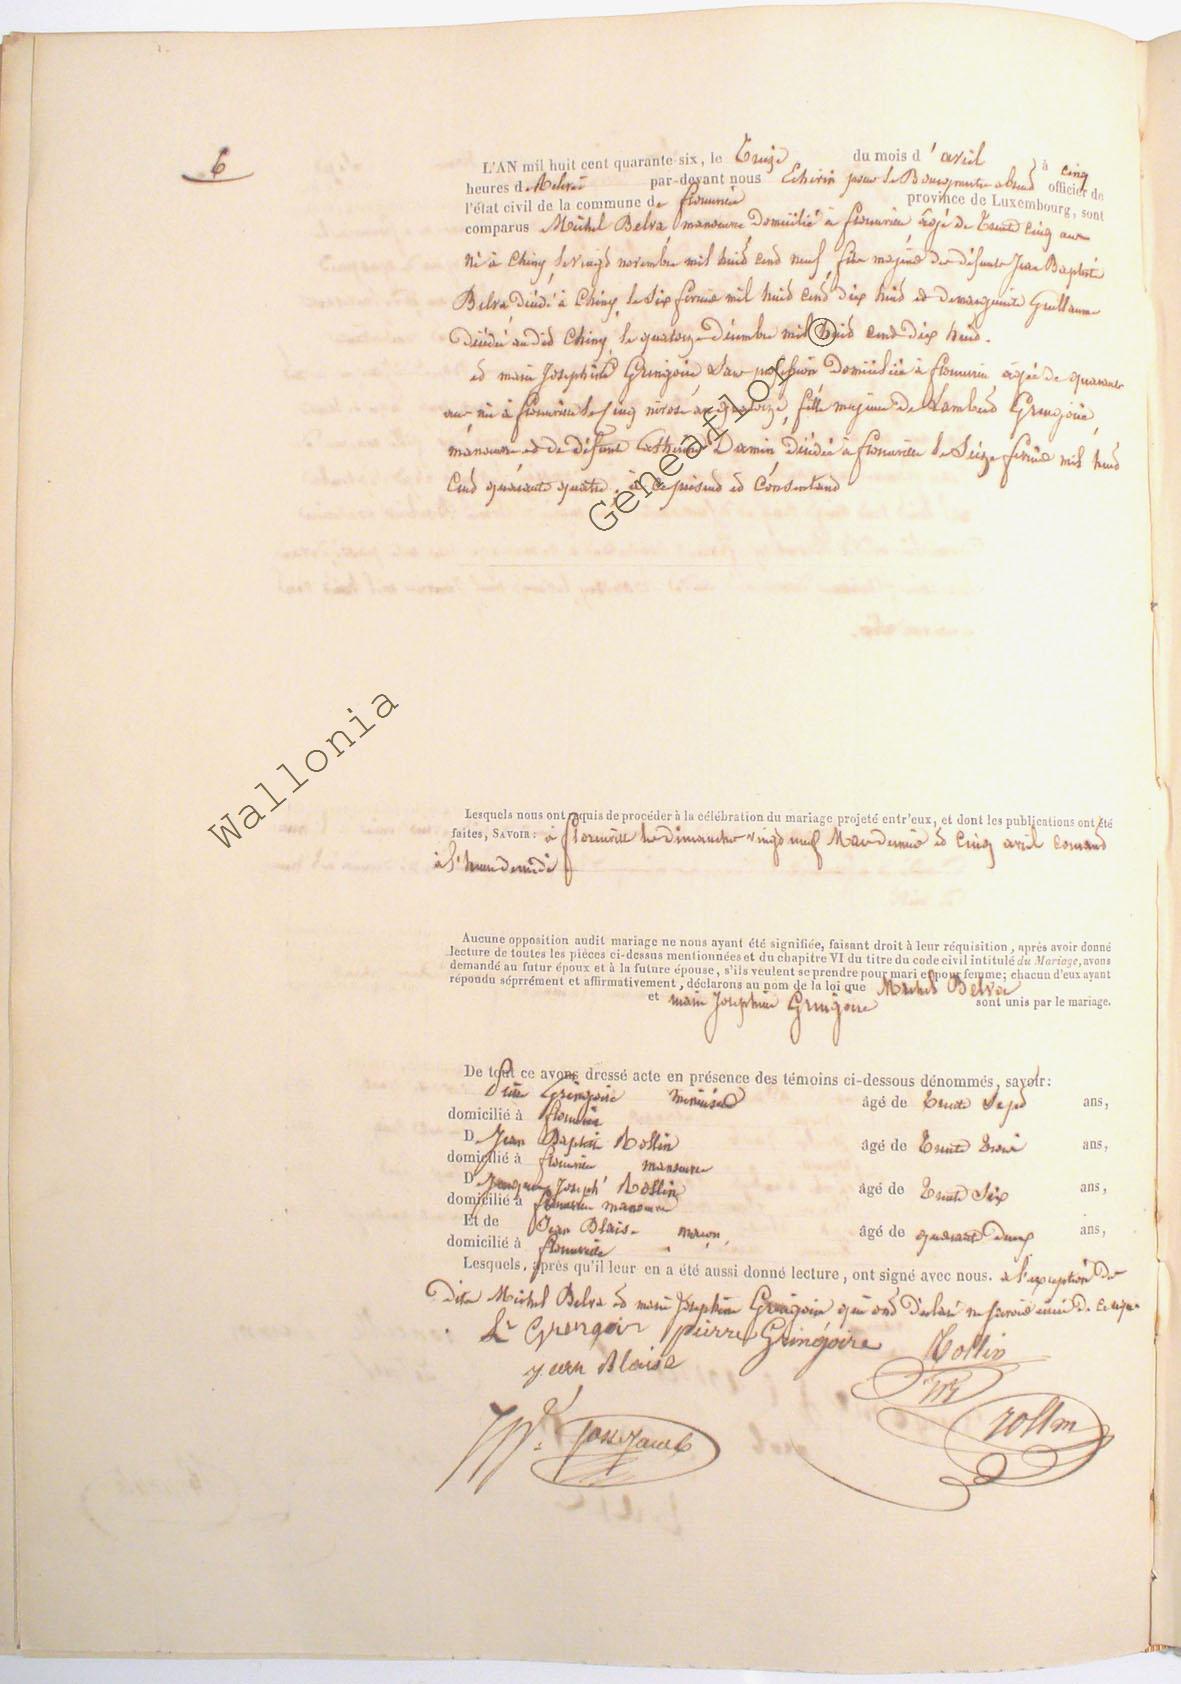 6
L'AN mil huit cent quarante-six, le Treize du mois d'avril à cinq
heures de Relevée par-devant nous Echevin pour le Bourgmestre absent officier de
l'état civil de la commune de florenville province de Luxembourg, sont
comparus Michel Belva manoeuvre Domicilié à florenville âgé de Trente Cinq ans
né à Chiny le vingt novembre mil huit cent neuf fils majeur de défunts Jean Baptiste
Belva Décédé à Chiny, le Six février mil huit cent dix huit et de marguerite Guillaume
Décédée audit Chiny, le quatorze Décembre mil huit cent Dix huit.
et marie Josephine Gringoire Sans profession Domiciliée à florenville âgée de quarante
ans née à florenville le Cinq nivose an quatorze, fille majeure de Lambert Gringoire,
manoeuvre et de défunte Catherine Damin, Décédée à florenville le Seize février mil huit
Cent quarante quatre, à ce présent et Consentant
Geneaflor ©
Wallonia
Lesquels nous ont requis de procéder à la célébration du mariage projeté entr'eux, et dont les publications ont été
faites, SAVOIR: à florenville les Dimanches vingt neuf Mars dernier et Cinq avril courant
à l'heure de midi
Aucune opposition audit mariage ne nous ayant été signifiée, faisant droit à leur réquisition, après avoir donné
lecture de toutes les pièces ci-dessus mentionnées et du chapitre VI du titre du code civil intitulé du Mariage, avons
demandé au futur époux et à la future épouse, s'ils veulent se prendre pour mari et pour femme; chacun d'eux ayant
répondu séprrément et affirmativement, déclarons au nom de la loi que Michel Belva
et marie Josephine Gringoire sont unis par le mariage.
De tout ce avons dressé acte en présence des témoins ci-dessous dénommés, savoir:
Pierre Gringoire menuisier âgé de Trente Sept ans,
domicilié à florenville
D Jean Baptiste Rollin âgé de Trente Trois ans,
domicilié à florenville manoeuvre
D Jacques Joseph Rollin âgé de Trente Six ans,
domicilié à florenville manoeuvre
Et de Jean Blaise maçon, âgé de quarante Deux ans,
domicilié à florenville
Lesquels, après qu'il leur en a été aussi donné lecture, ont signé avec nous. à l'exception des
Dits Michel Belva et marie Josephine Gringoire qui ont déclaré ne savoir écrire De ce requis
Lt Grengoir pierre Gringoire Rollin
jean Blaise
rollin